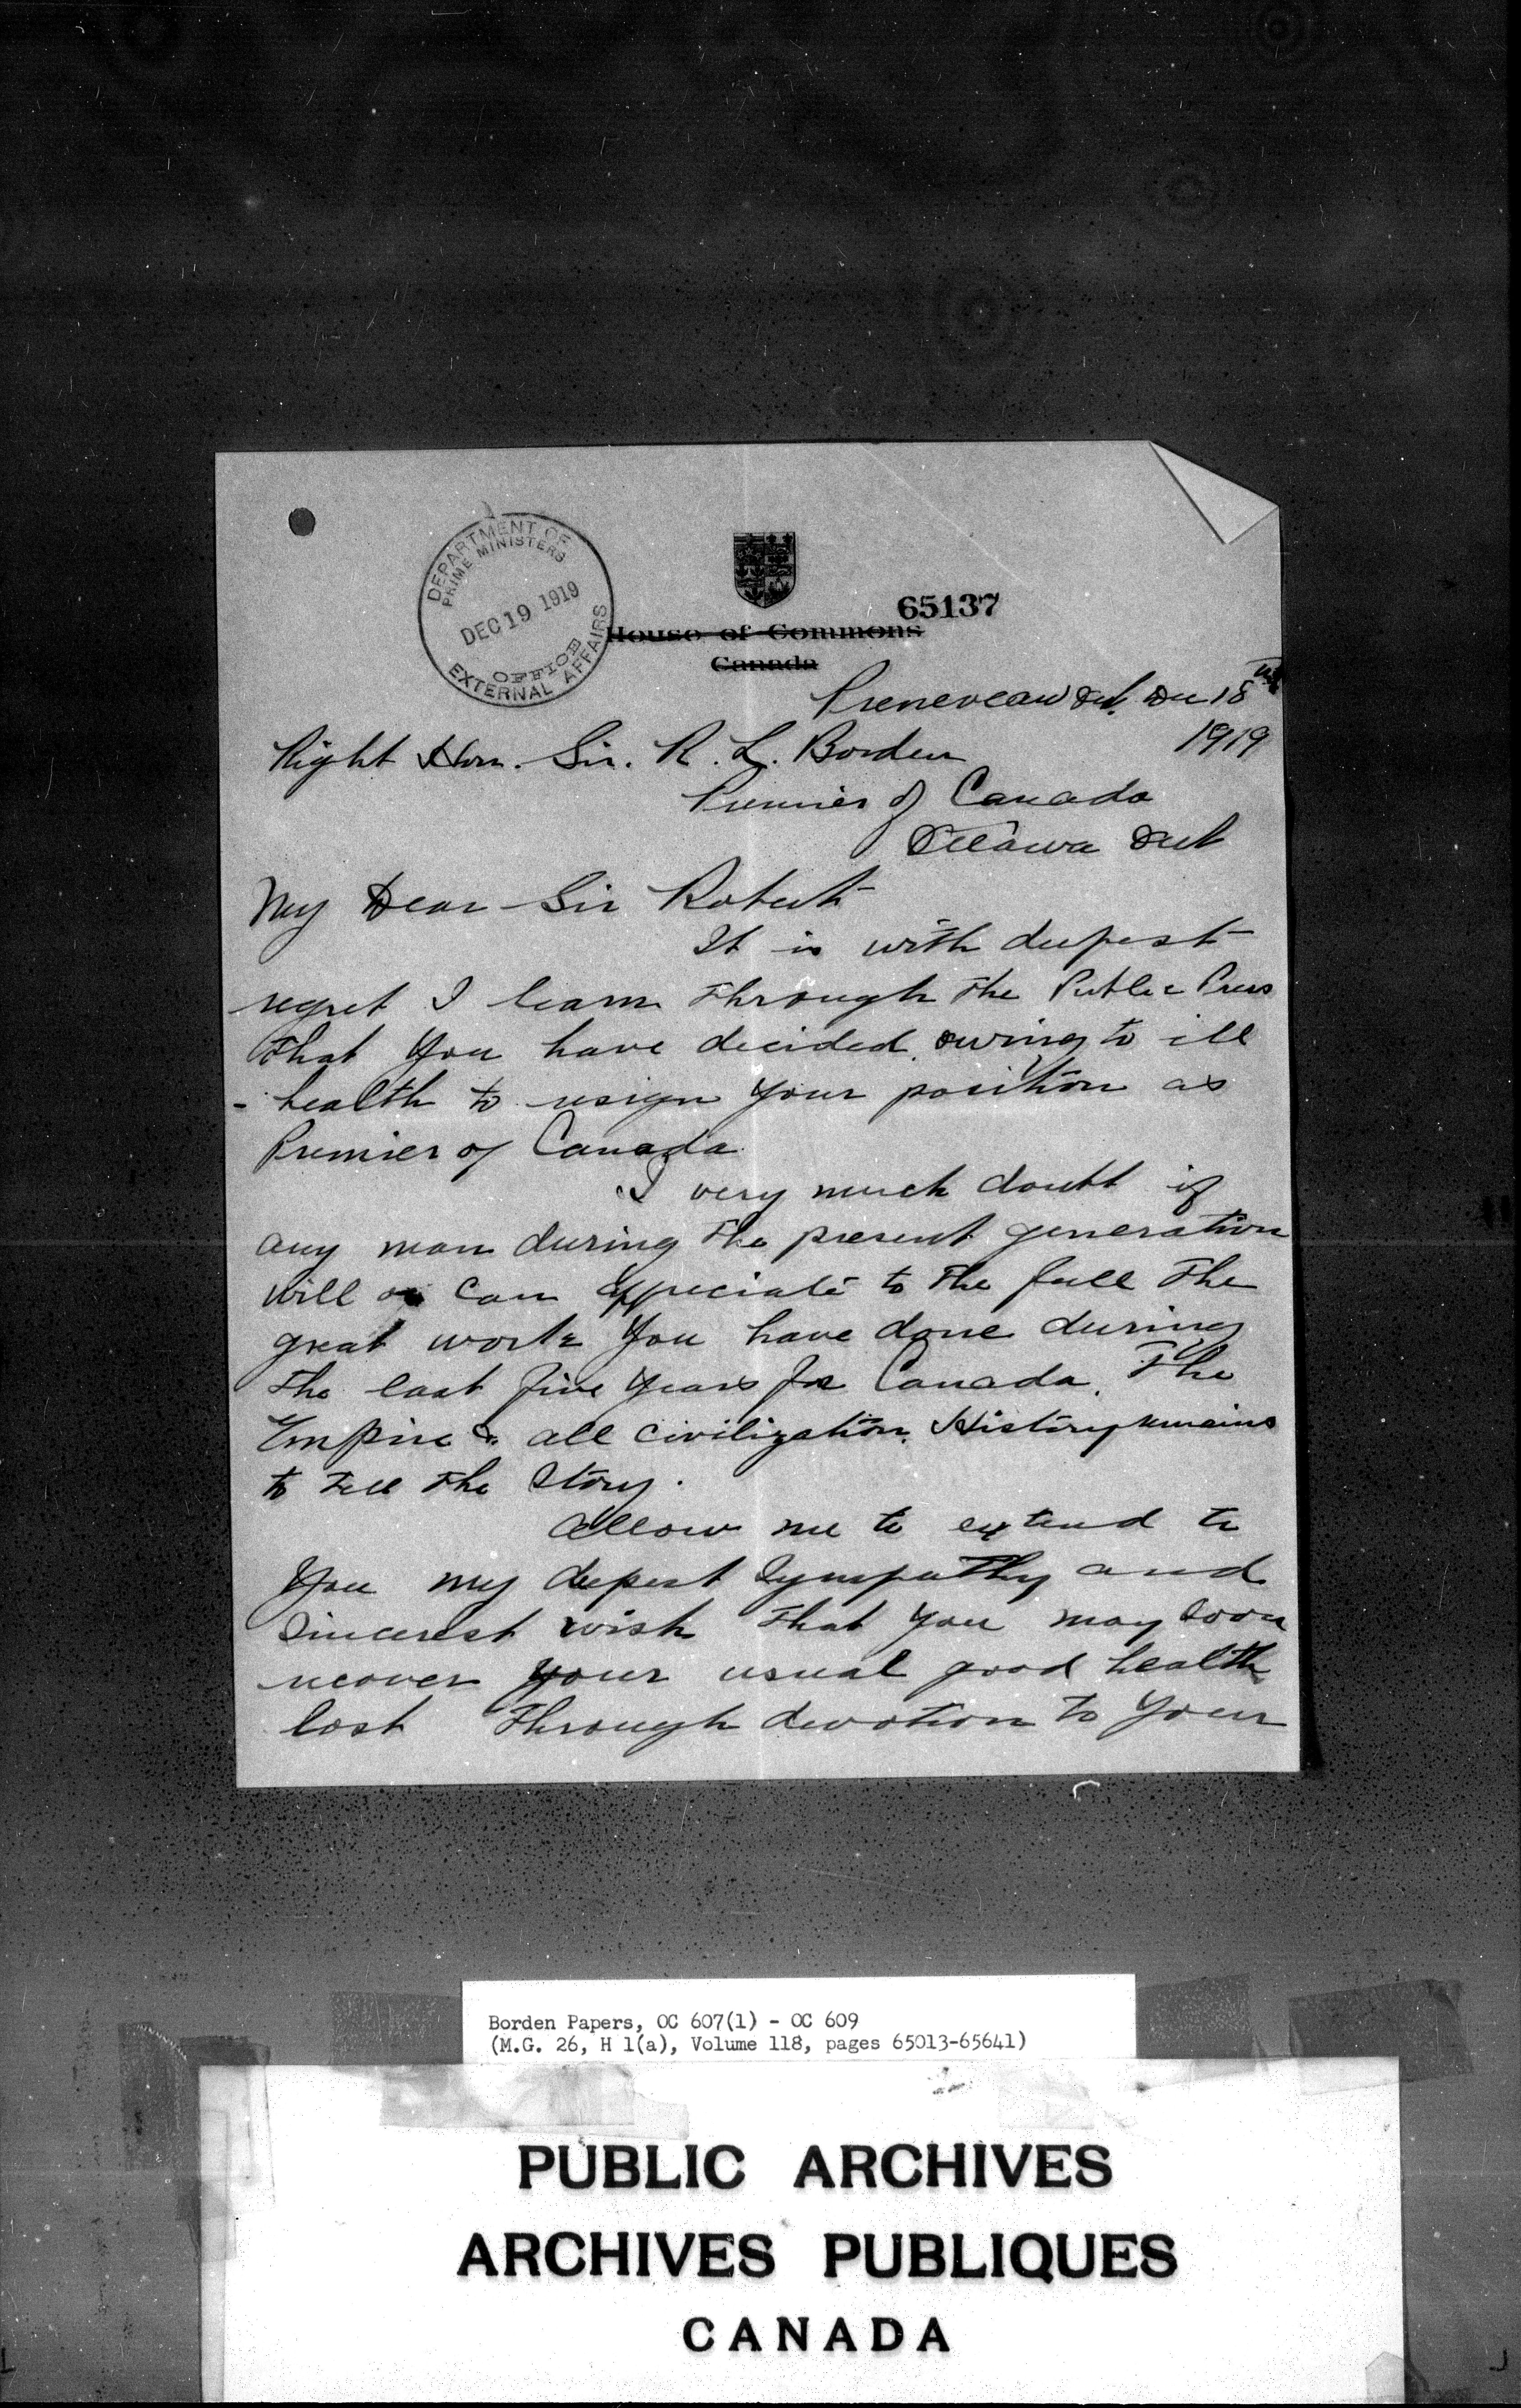 DEPARTMENT OF
PRIME MINISTERS
DEC 19 1919
OFFICE
EXTERNAL AFFAIRS
65137
House of Commons
Canada
Ont. Dec 18th
1919
Right Hon. Sir. R. L. Borden
Premier of Canada
Ottawa Ont
My Dear Sir Robert
It is with deepest
regret I learn through the Public Press
that you have decided owing to ill
- health to resign your position as
Premier of Canada
I very much doubt if
any man during the present generation
will or can appreciate to the full the
great work you have done during
the last five years for Canada, The
Empire & all civilization. History remains
to tell the story.
Allow me to extend to
you my deepest sympathy and
sincerest wish that you may soon
recover your usual good health
lost through devotion to your
Borden Papers, OC 607(1) - OC 609
(M.G. 26, H 1(a), Volume 118, pages 65013-65641)
PUBLIC ARCHIVES
ARCHIVES PUBLIQUES
CANADA